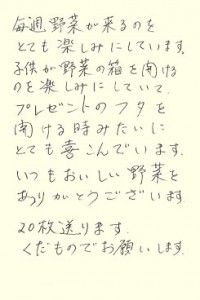 毎週野菜が来るのを
とても楽しみにしています。
子供が野菜の箱を開ける
のを楽しみにしていて、
プレゼントのフタを
開ける時みたいに
とても喜こんでいます。
いつもおいしい野菜を
ありがとうございます。
20枚送ります。
くだものでお願いします。